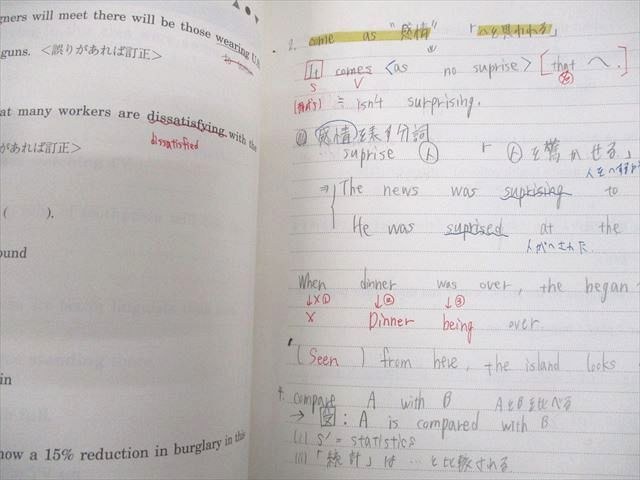 ners will meet there will be those wearing U.
guns. <誤りがあれば訂正>
at many workers are dissatisfying with the
dissatisfied
があれば訂正>
( ).
ound
in
now a 15% reduction in burglary in this
2. come as "感情" 「〜と思われる」
It comes <as no suprise> [that 〜.]
S V
≒ isn4 surprising.
感情を表す分詞
… suprise 人 「人を驚かせる」
⇒ The news was suprising to
He was suprised at the
人が〜された
When dinner was over, the began
↓×① ↓② ↓③
× Dinner being over
(Seen) from here, the island looks
4. compare A with B AとBを比べる
→ 図: A is compared with B
(i) S' = statistics
(ii) 「統計」は … と比較される